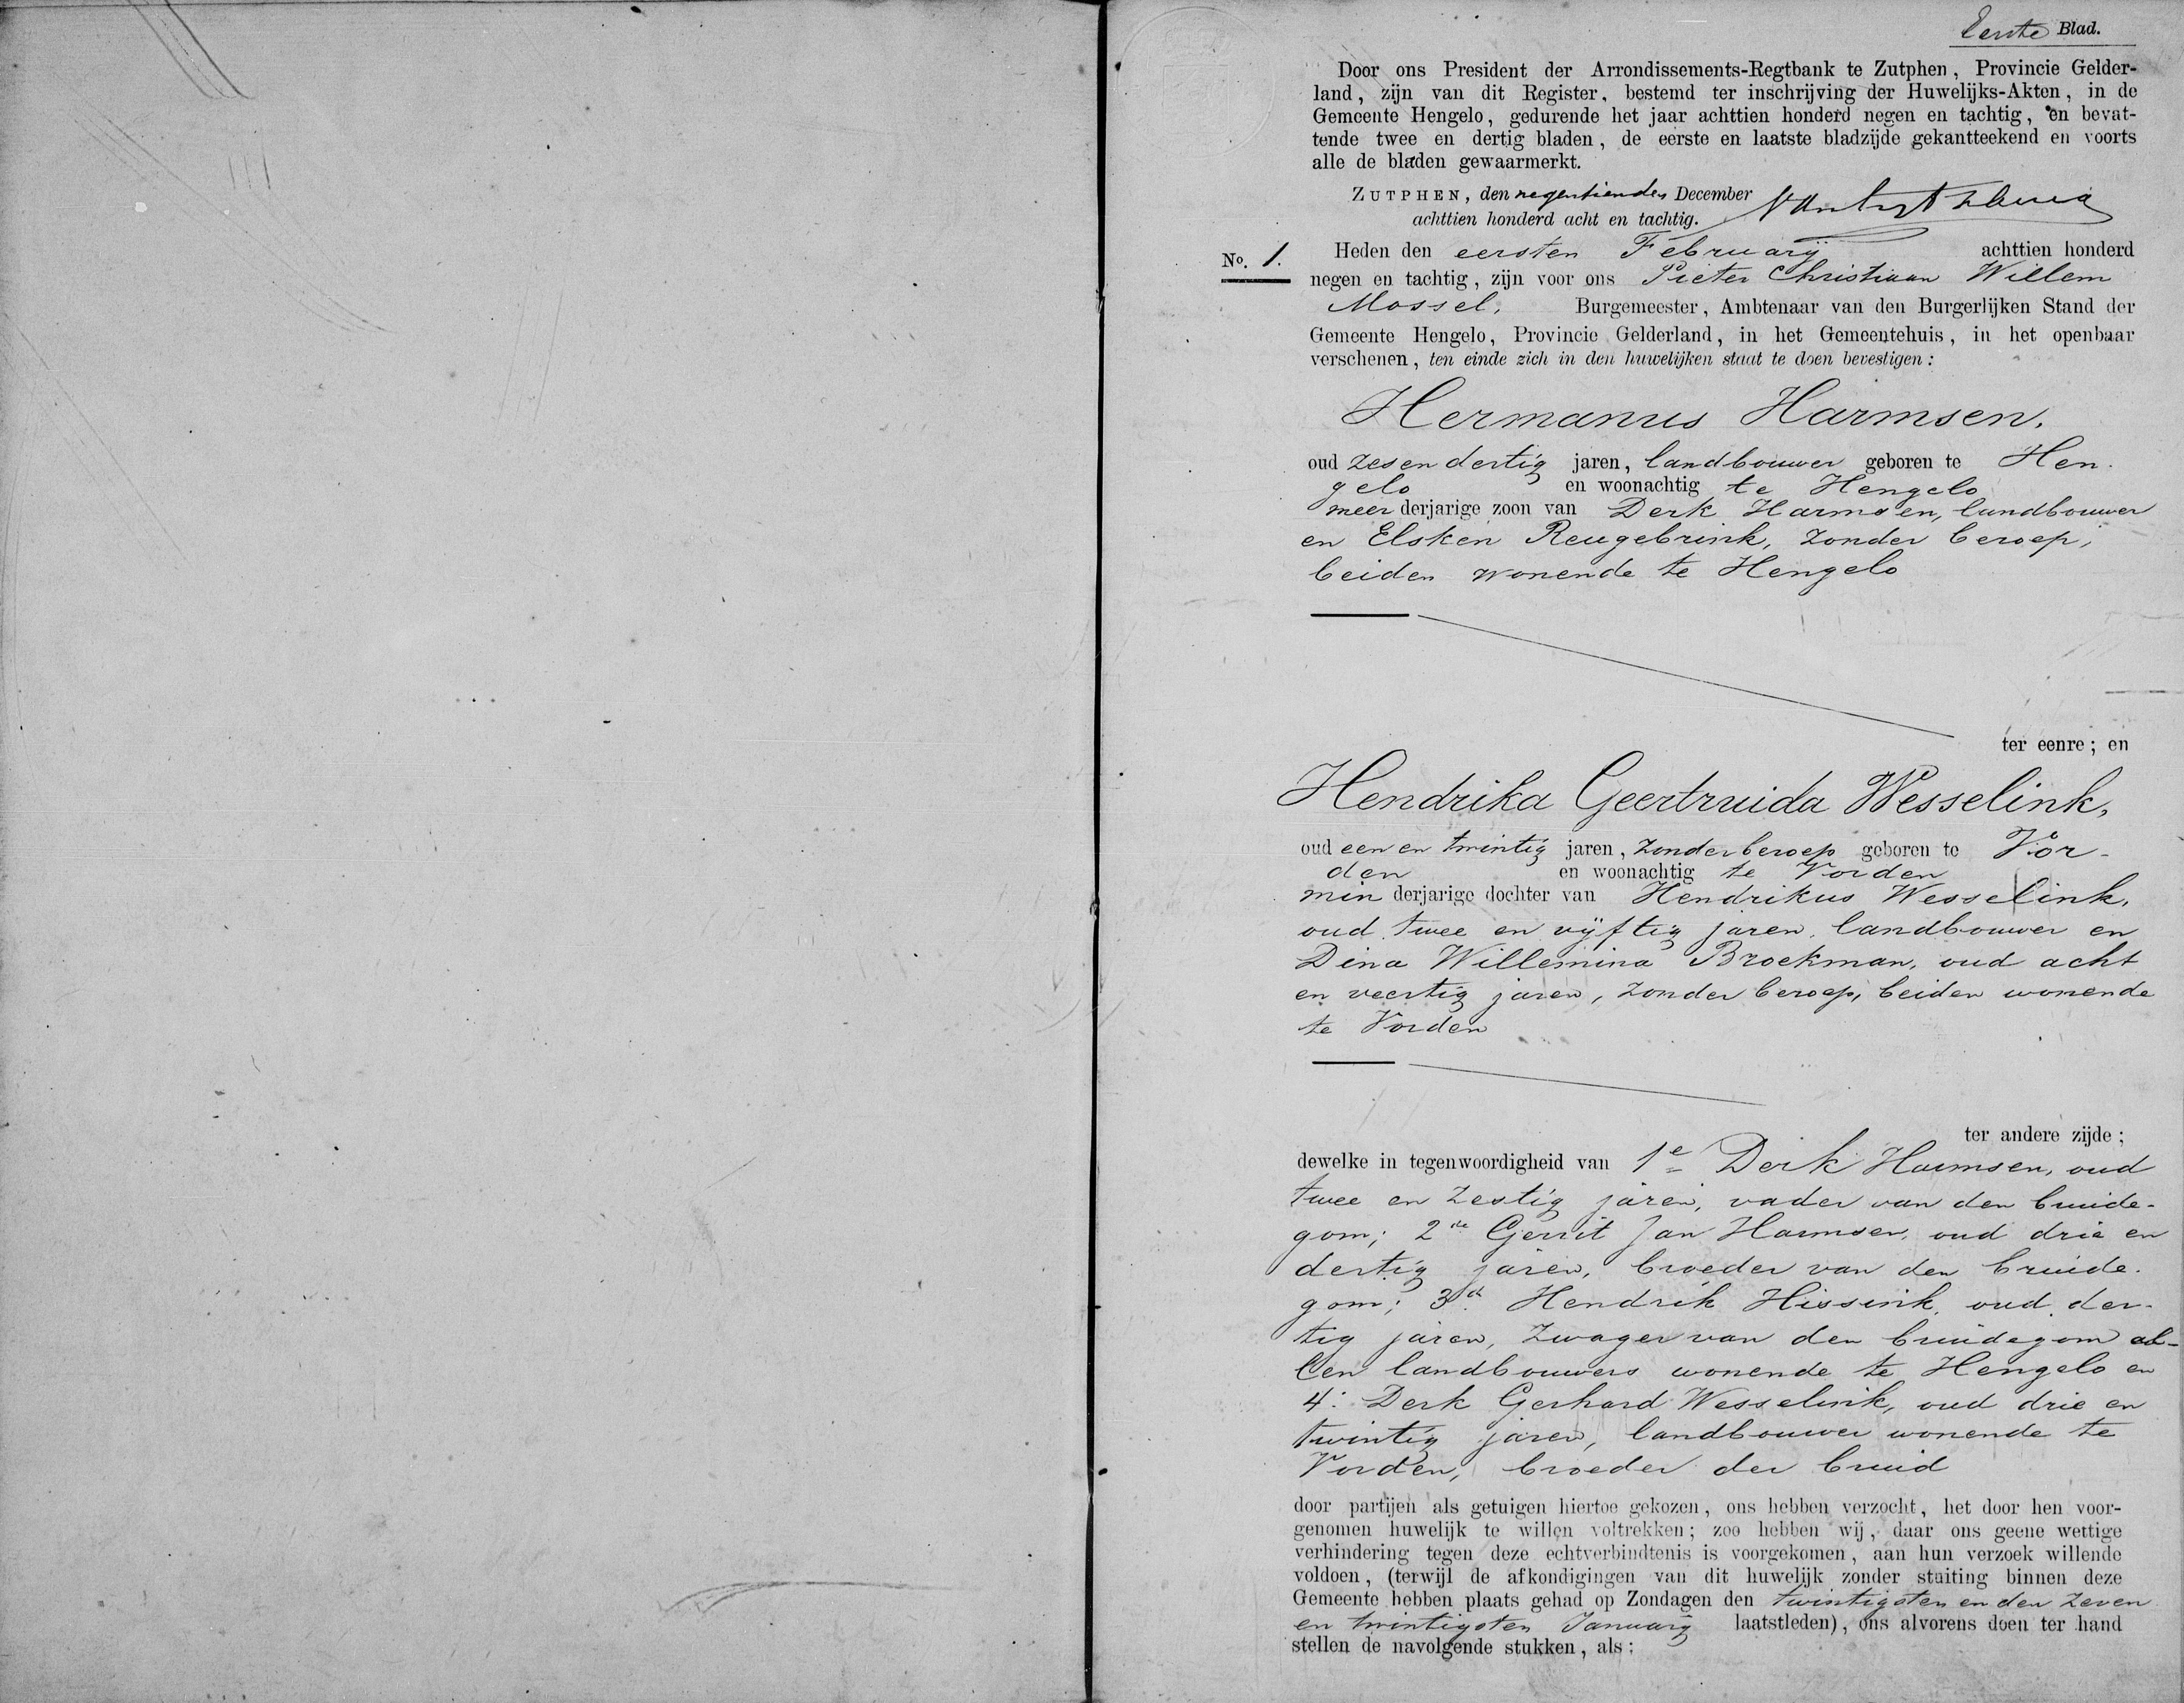 Eerste Blad.
Door ons President der Arrondissements-Regtbank te Zutphen, Provincie Gelder-
land, zijn van dit Register, bestemd ter inschrijving der Huwelijks-Akten, in de
Gemeente Hengelo, gedurende het jaar achttien honderd negen en tachtig, en bevat-
tende twee en dertig bladen, de eerste en laatste bladzijde gekantteekend en voorts
alle de bladen gewaarmerkt.
ZUTPHEN, den negentienden December
achttien honderd acht en tachtig.
No. 1. Heden den eersten Februarij achttien honderd
negen en tachtig, zijn voor ons Pieter Christiaan Willem
Mossel, Burgemeester, Ambtenaar van den Burgerlijken Stand der
Gemeente Hengelo, Provincie Gelderland, in het Gemeentehuis, in het openbaar
verschenen, ten einde zich in den huwelijken staat te doen bevestigen:
Hermanus Harmsen,
oud zes en dertig jaren, landbouwer geboren te Hen-
gelo en woonachtig te Hengelo
meerderjarige zoon van Derk Harmsen, landbouwer
en Elsken Reugebrink, zonder beroep,
beiden wonende te Hengelo
ter eenre; en
Hendrika Geertruida Wesselink,
oud een en twintig jaren, zonder beroep geboren te Vor-
den en woonachtig te Vorden
minderjarige dochter van Hendrikus Wesselink,
oud twee en vijftig jaren, landbouwer en
Dina Willemina Broekman, oud acht
en veertig jaren, zonder beroep, beiden wonende
te Vorden
ter andere zijde;
dewelke in tegenwoordigheid van 1e Derk Harmsen, oud
twee en zestig jaren, vader van den bruide-
gom; 2de Gerrit Jan Harmsen, oud drie en
dertig jaren, broeder van den bruide-
gom; 3d Hendrik Hissink, oud der-
tig jaren, zwager van den bruidegom al-
len landbouwers wonende te Hengelo en
4: Derk Gerhard Wesselink, oud drie en
twintig jaren, landbouwer wonende te
Vorden, broeder der bruid
door partijen als getuigen hiertoe gekozen, ons hebben verzocht, het door hen voor-
genomen huwelijk te willen voltrekken; zoo hebben wij, daar ons geene wettige
verhindering tegen deze echtverbindtenis is voorgekomen, aan hun verzoek willende
voldoen, (terwijl de afkondigingen van dit huwelijk zonder stuiting binnen deze
Gemeente hebben plaats gehad op Zondagen den twintigsten en den zeven
en twintigsten Januarij laatstleden), ons alvorens doen ter hand
stellen de navolgende stukken, als: